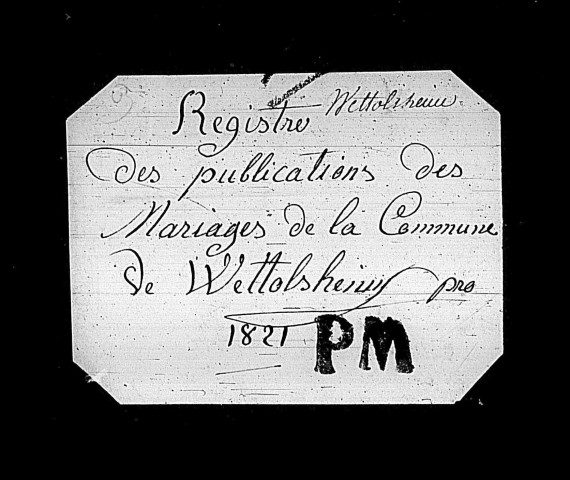 Registre Wettolsheim
des publications des
Mariages de la Commune
de Wettolsheim pro
1821 PM